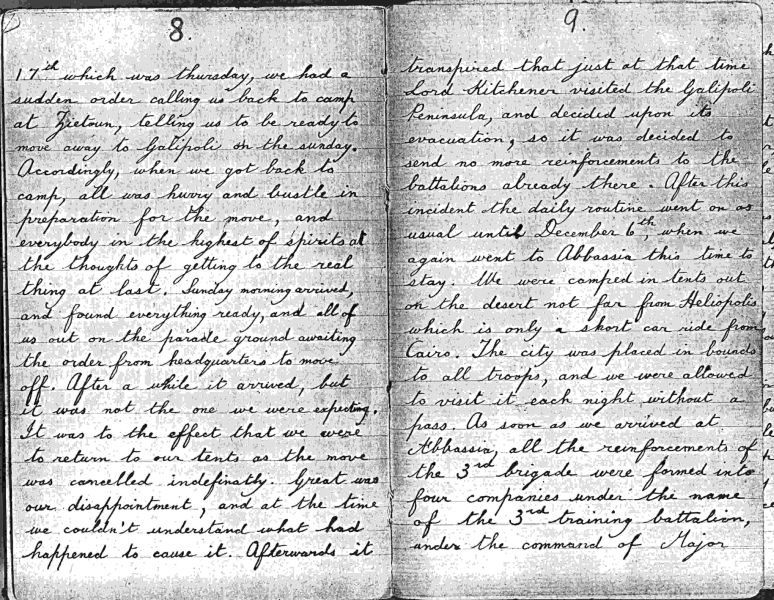 8.
17th which was thursday, we had a
sudden order calling us back to camp
at Zietoun, telling us to be ready to
move away to Galipoli on the sunday.
Accordingly, when we got back to
camp, all was hurry and bustle in
preparation for the move, and
everybody in the highest of spirits at
the thoughts of getting to the real
thing at last. Sunday morning arrived,
and found everything ready, and all of
us out on the parade ground awaiting
the order from headquarters to move
off. After a while it arrived, but
it was not the one we were expecting.
It was to the effect that we were
to return to our tents as the move
was cancelled indefinatly. Great was
our disappointment, and at the time
we couldn't understand what had
happened to cause it. Afterwards it
9.
transpired that just at that time
Lord Kitchener visited the Galipoli
Peninsula, and decided upon its
evacuation, so it was decided to
send no more reinforcements to the
battalions already there. After this
incident the daily routine went on as
usual until December 6th, when we
again went to Abbassia this time to
stay. We were camped in tents out
on the desert not far from Heliopolis
which is only a short car ride from
Cairo. The city was placed in bounds
to all troops, and we were allowed
to visit it each night without a
pass. As soon as we arrived at
Abbassia, all the reinforcements of
the 3rd brigade were formed into
four companies under the name
of the 3rd training battalion,
under the command of Major